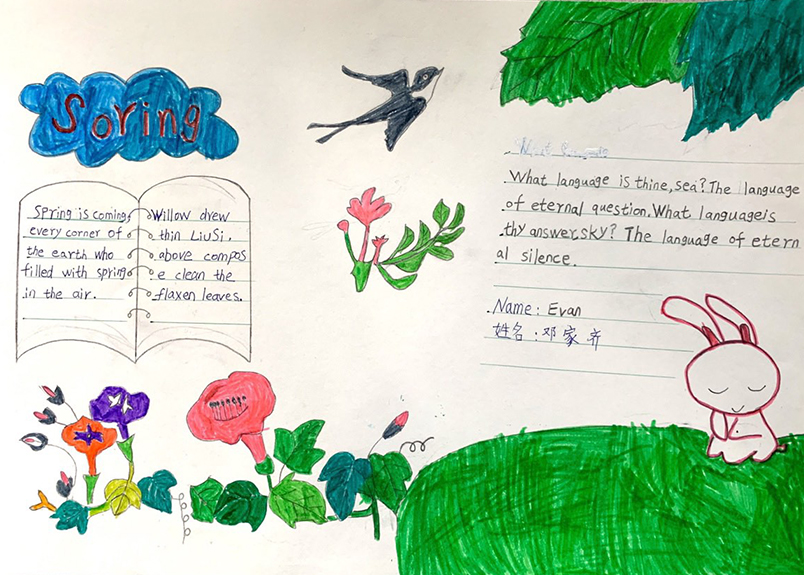 Soring
Spring is coming,
every corner of
the earth who
filled with spring
in the air.
Willow drew
thin LiuSi.
above compos
e clean the
flaxen leaves.
What language is thine, sea? The language
of eternal question. What languageis
thy answer, sky? The language of etern
al silence.
Name: Evan
姓名：邓家齐